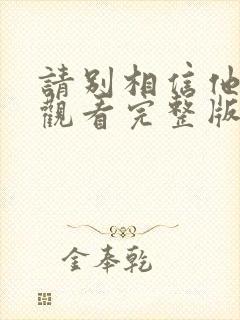 請別相信他
觀看完整版
金奉乾